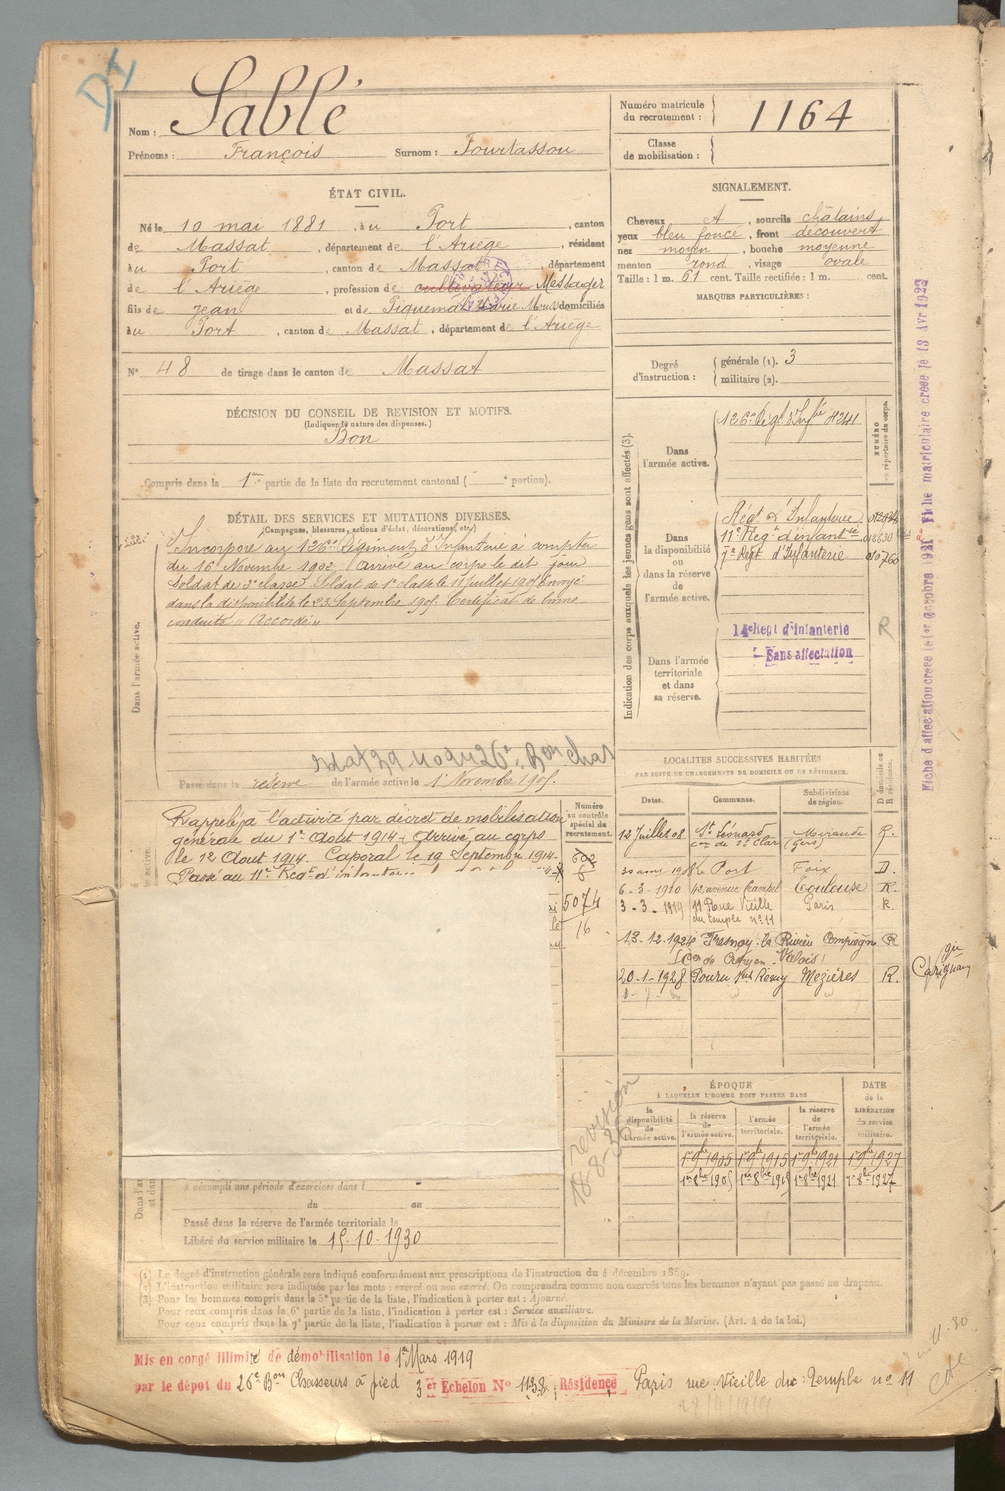 Nom : Sablé
Prénoms : François Surnom : Fourtassou
Numéro matricule
du recrutement : 1164
Classe
de mobilisation :
ÉTAT CIVIL.
Né le 10 mai 1881, au Port, canton
de Massat, département de l'Ariège, résidant
au Port, canton de Massat, département
de l'Ariège, profession de cultivateur Messager
fils de Jean et de Piquemal Marie domiciliés
au Port, canton de Massat, département de l'Ariège
N° 48 de tirage dans le canton de Massat
DÉCISION DU CONSEIL DE REVISION ET MOTIFS.
(Indiquer la nature des dispenses.)
Bon
Compris dans la 1re partie de la liste du recrutement cantonal ( e portion).
SIGNALEMENT.
Cheveux A, sourcils châtains,
yeux bleu foncé, front découvert
nez moyen, bouche moyenne
menton rond, visage ovale
Taille : 1 m. 61 cent. Taille rectifiée : 1 m. cent.
MARQUES PARTICULIÈRES :
Degré
d'instruction :
générale (1). 3
militaire (2).
DÉTAIL DES SERVICES ET MUTATIONS DIVERSES.
(Campagnes, blessures, actions d'éclat, décorations, etc.)
Dans l'armée active.
Incorporé au 126e Régiment d'Infanterie à compter
du 16 Novembre 1902, arrivé au corps le dit jour
soldat de 2e classe. Soldat de 1e classe le 11 juillet 190 Envoyé
dans la disponibilité le 23 Septembre 1905. Certificat de bonne
conduite "Accordé"
Passé dans la réserve de l'armée active le 1 Novembre 1905.
Indication des corps auxquels les jeunes gens sont affectés (3).
NUMÉRO
au répertoire du corps.
Dans
l'armée active.
126e Régt d'Infie
Dans
la disponibilité
ou
dans la réserve
de
l'armée active.
Régt d'Infanterie
11e Reg t d'infant
7e Régt d'Infanterie
Dans l'armée
territoriale
et dans
sa réserve.
14e Regt d'Infanterie
Sans affectation
R
Rappelé à l'activité par décret de mobilisation
générale du 1er Août 1914. Arrivé au corps
le 12 Aout 1914. Caporal le 19 Septembre 1914
Passé au 11e Reg t d'infanterie
Numéro
au contrôle
spécial du
recrutement.
602
8
5074
16
LOCALITÉS SUCCESSIVES HABITÉES
PAR SUITE DE CHANGEMENTS DE DOMICILE OU DE RÉSIDENCE.
Dates. Communes. Subdivisions
de région. D domicile ou
R résidence.
12 Juillet 08 St Léonard Mirande R.
con de St Clar (Gers)
Le Port Foix D.
6-3-1910 Toulouse R.
3-3-1919 11 Rue Vieille Paris R.
du temple n° 11
13-12-1924 Fresnoy-la Rivière Compiègne R
(Con de Crépy en Valois)
20-1-1928 Pouru St Remy Mezières R.
Carignan
ÉPOQUE
À LAQUELLE L'HOMME DOIT PASSER DANS
la
disponibilité
de
l'armée active.
la réserve
de
l'armée active.
l'armée
territoriale.
la réserve
de
l'armée
territoriale.
DATE
de la
LIBÉRATION
du service
militaire.
1er 9bre 1905 1er 9bre 1915 1er 9bre 1921 1er 9bre 1927
1er 8bre 1905 1er 8bre 1921 1er 8bre 1927
revision
a accompli une période d'exercices dans l
du au
Passé dans la réserve de l'armée territoriale le
Libéré du service militaire le 15-10-1930
(1) Le degré d'instruction générale sera indiqué conformément aux prescriptions de l'instruction du 4 décembre 1889.
(2) L'instruction militaire sera indiquée par les mots : exercé ou non exercé. On comprendra comme non exercés tous les hommes n'ayant pas passé au drapeau.
(3) Pour les hommes compris dans la 5e partie de la liste, l'indication à porter est : Ajourné.
Pour ceux compris dans la 6e partie de la liste, l'indication à porter est : Service auxiliaire.
Pour ceux compris dans la 7e partie de la liste, l'indication à porter est : Mis à la disposition du Ministre de la Marine. (Art. 4 de la loi.)
Mis en congé illimité de démobilisation le 1er Mars 1919
par le dépot du 26e Bon Chasseurs à pied 3er Echelon N° 1138, Résidence Paris rue Vieille du Temple n° 11
Fiche d'affectation creee le 1er Octobre 1921 Fiche matriculaire creee le 13 Avr 1922